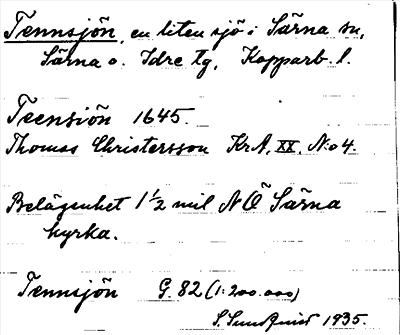 Tennsjön, en liten sjö i Särna sn,
Särna o. Idre tg, Kopparb. l.
Teensiön 1645.
Thomas Christersson KrA, XX, No 4.
Belägenhet 1 1/2 mil NÖ Särna
kyrka.
Tennsjön G. 82 (1:200.000)
S. Sundquist 1935.